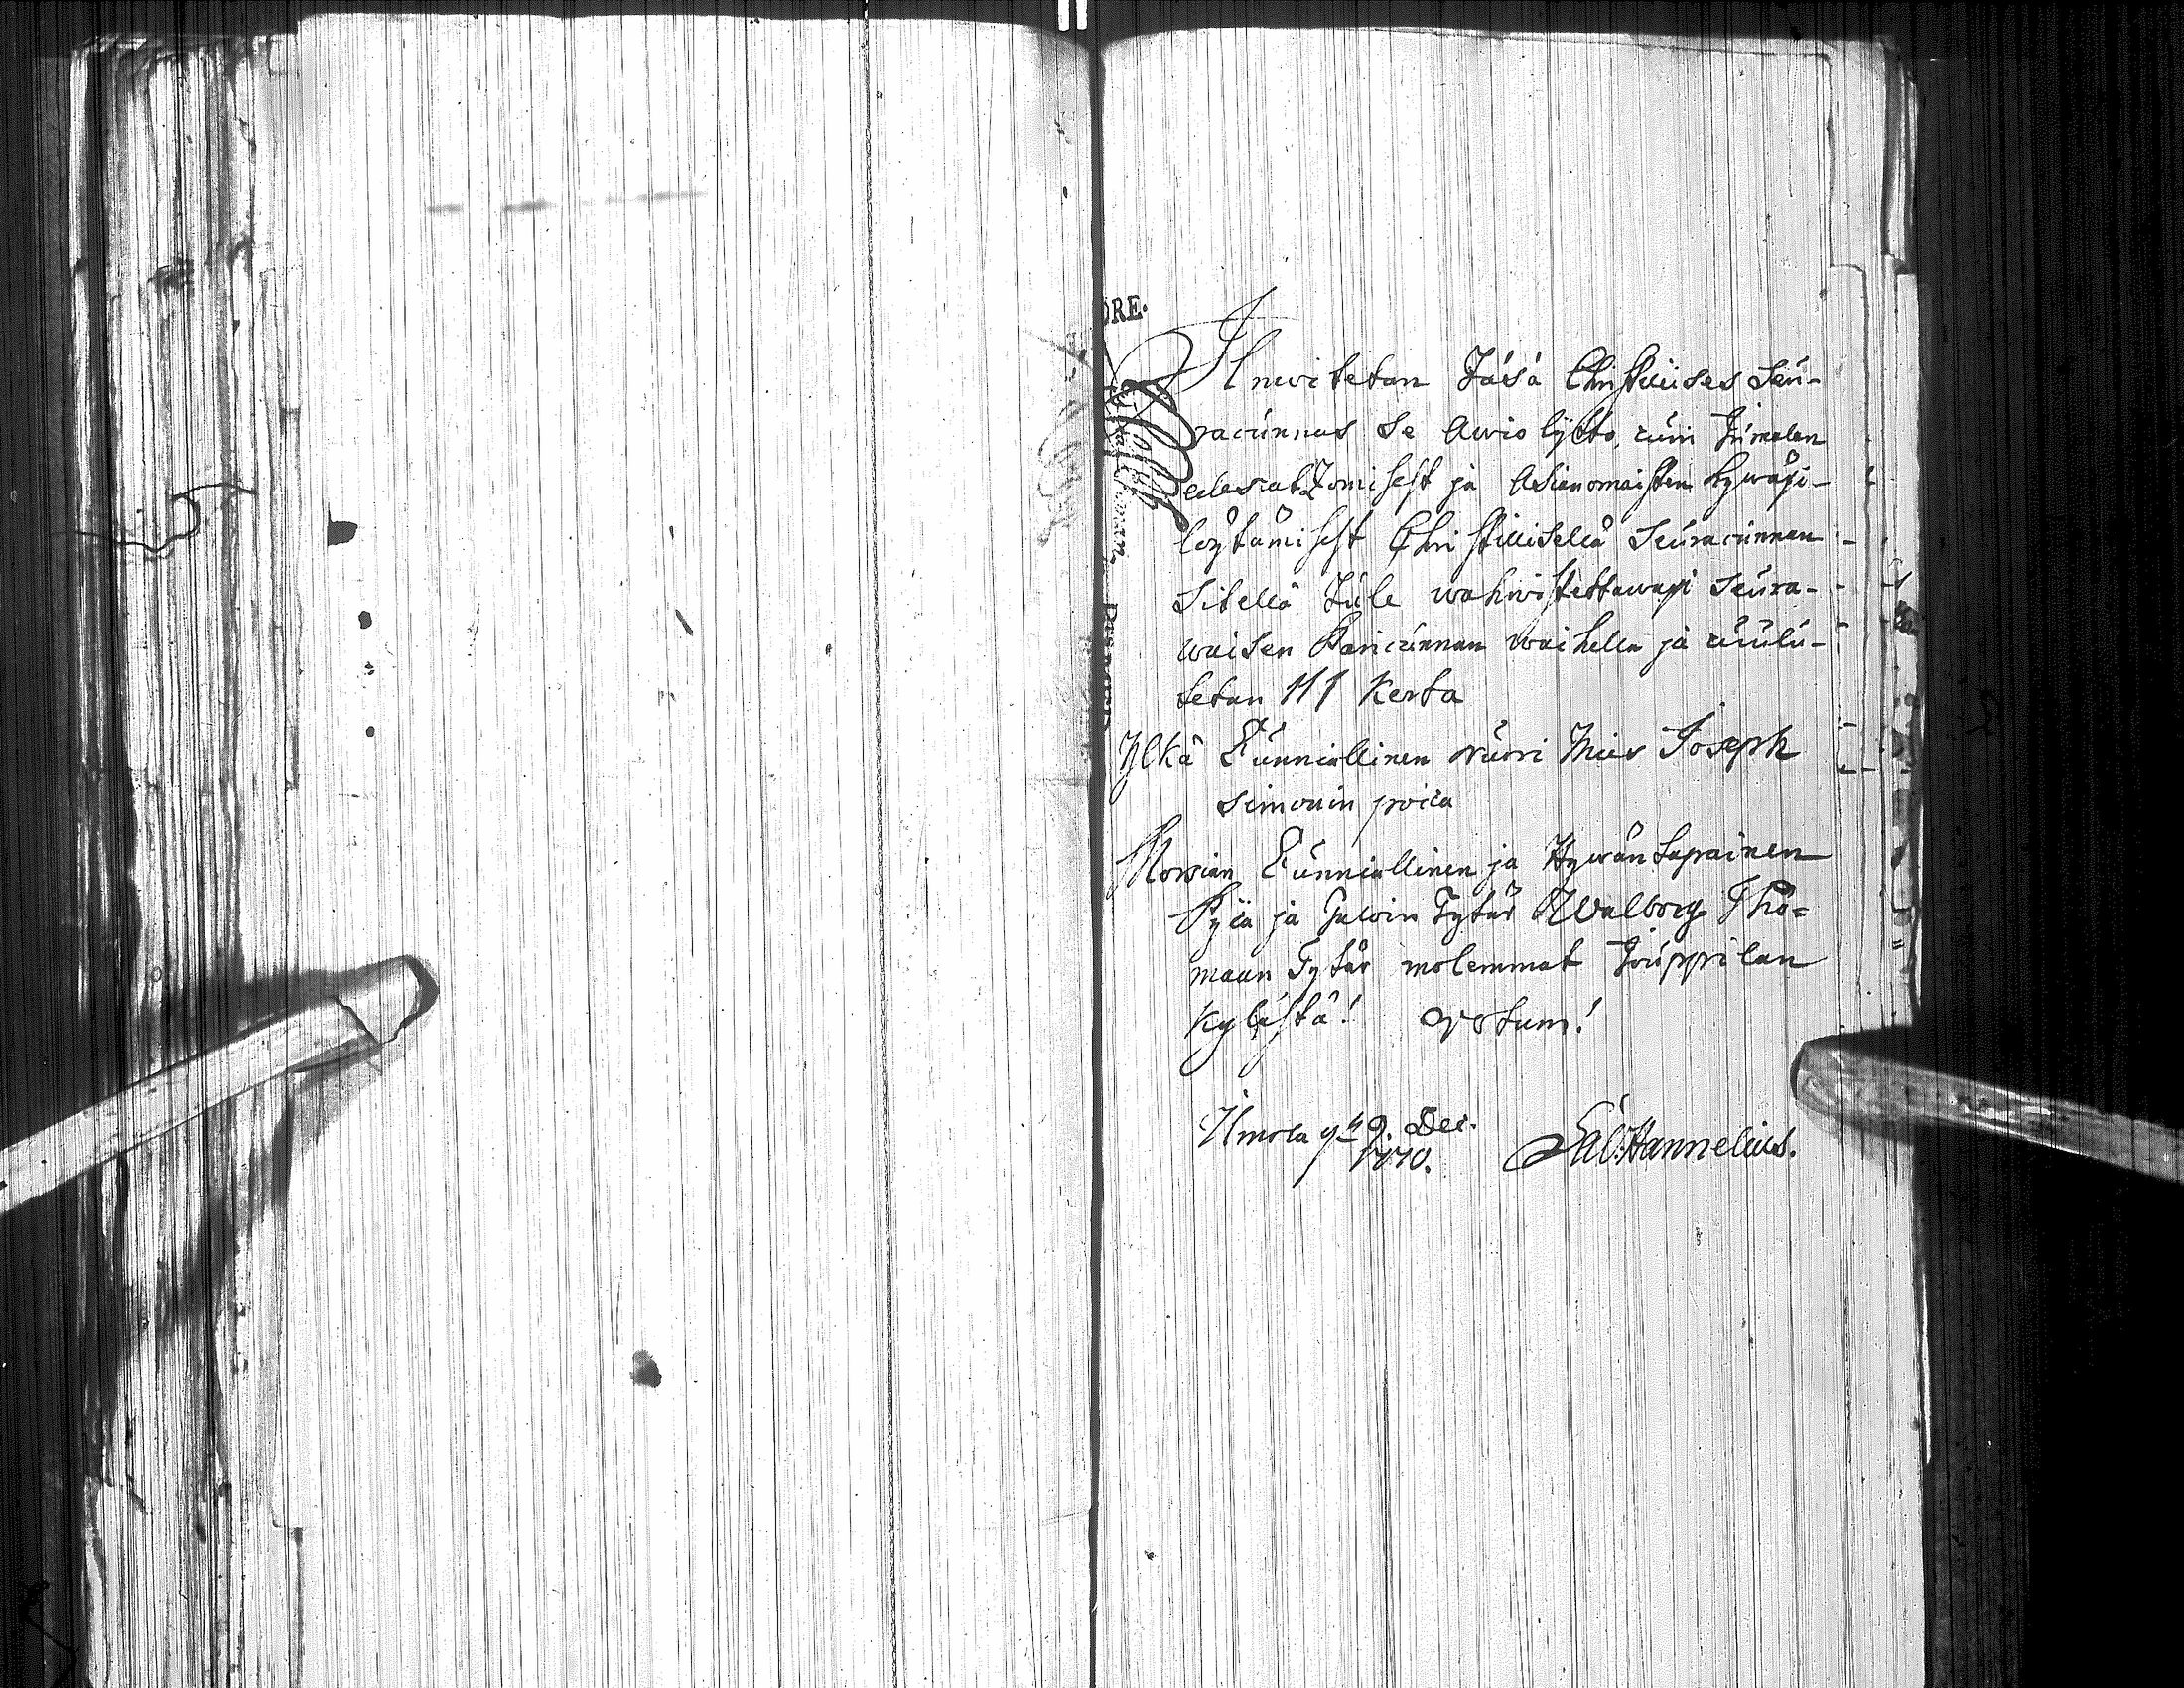 ORE.
Ilmoitetan Täsä Christilises Seu-
racunnas Se Awio lijtto, cuin Jumalan
edescatzomisest ja Asianomaisten hywäxi-
löytämisest Christilisellä Seuracunnan
Sitellä Tule wahwistettawaxi Seura-
waisen Pariscunnan waihella ja cuulu-
tetan III Kerta
Yljkä Cunniallinen nuori Mies Joseph
Simonin poica
Morsian Cunniallinen ja Hywän Tapainen
Pijca ja Taloin Tytär Walborg Tho-
maan Tytär molemmat Jouppilan
Kylästä! Votum!
Ilmola 9 Dec.
1770. Sal. Hannelius.